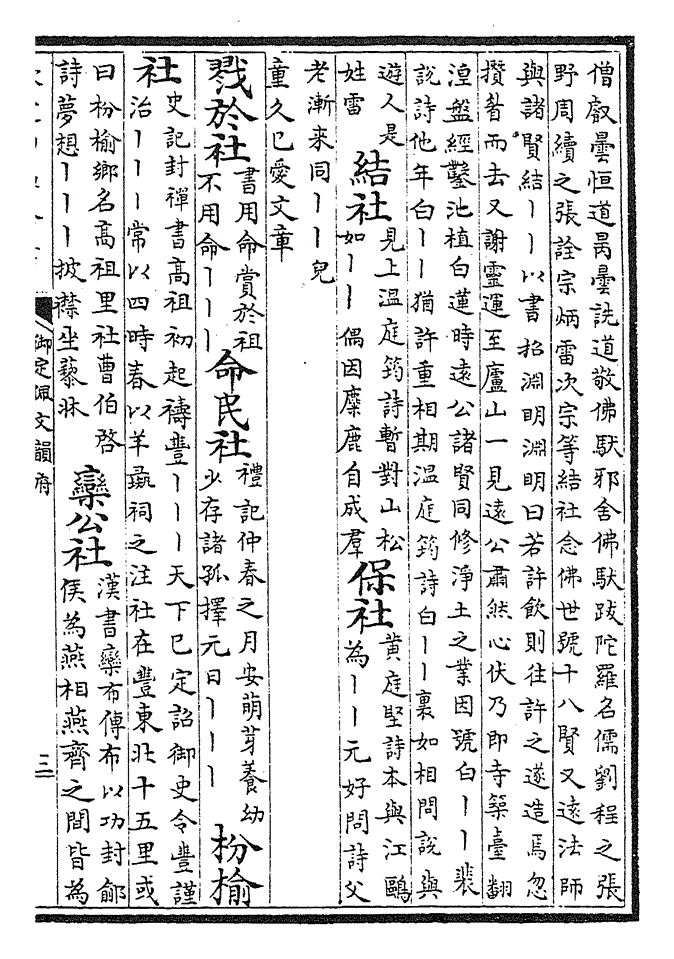 僧叡曇恒道昺曇詵道敬佛馱邪舍佛馱跋陀羅名儒劉程之張
野周續之張詮宗炳雷次宗等結社念佛世號十八賢又遠法師
與諸賢結丨丨以書招淵明淵明曰若許飲則往許之遂造焉忽
攢眉而去又謝靈運至廬山一見遠公肅然心伏乃即寺築臺翻
湼盤經鑿池植白蓮時遠公諸賢同修淨土之業因號白丨丨裴
說詩他年白丨丨猶許重相期温庭筠詩白丨丨裏如相問說與
遊人是
姓雷
結社
見上温庭筠詩暫對山松
如丨丨偶因麋鹿自成羣
保社
黄庭堅詩本與江鷗
為丨丨元好問詩父
老漸来同丨丨兒
童久已愛文章
戮於社
書用命賞於祖
不用命丨丨丨
命民社
禮記仲春之月安萌芽養幼
少存諸孤擇元日丨丨丨
枌榆
社
史記封禪書高祖初起禱豐丨丨丨天下已定詔御史令豐謹
治丨丨丨常以四時春以羊彘祠之注社在豐東北十五里或
曰枌榆鄉名高祖里社曹伯啓
詩夢想丨丨丨披襟坐藜牀
欒公社
漢書欒布傳布以功封鄃
侯為燕相燕齊之間皆為
御定佩文韻府
三